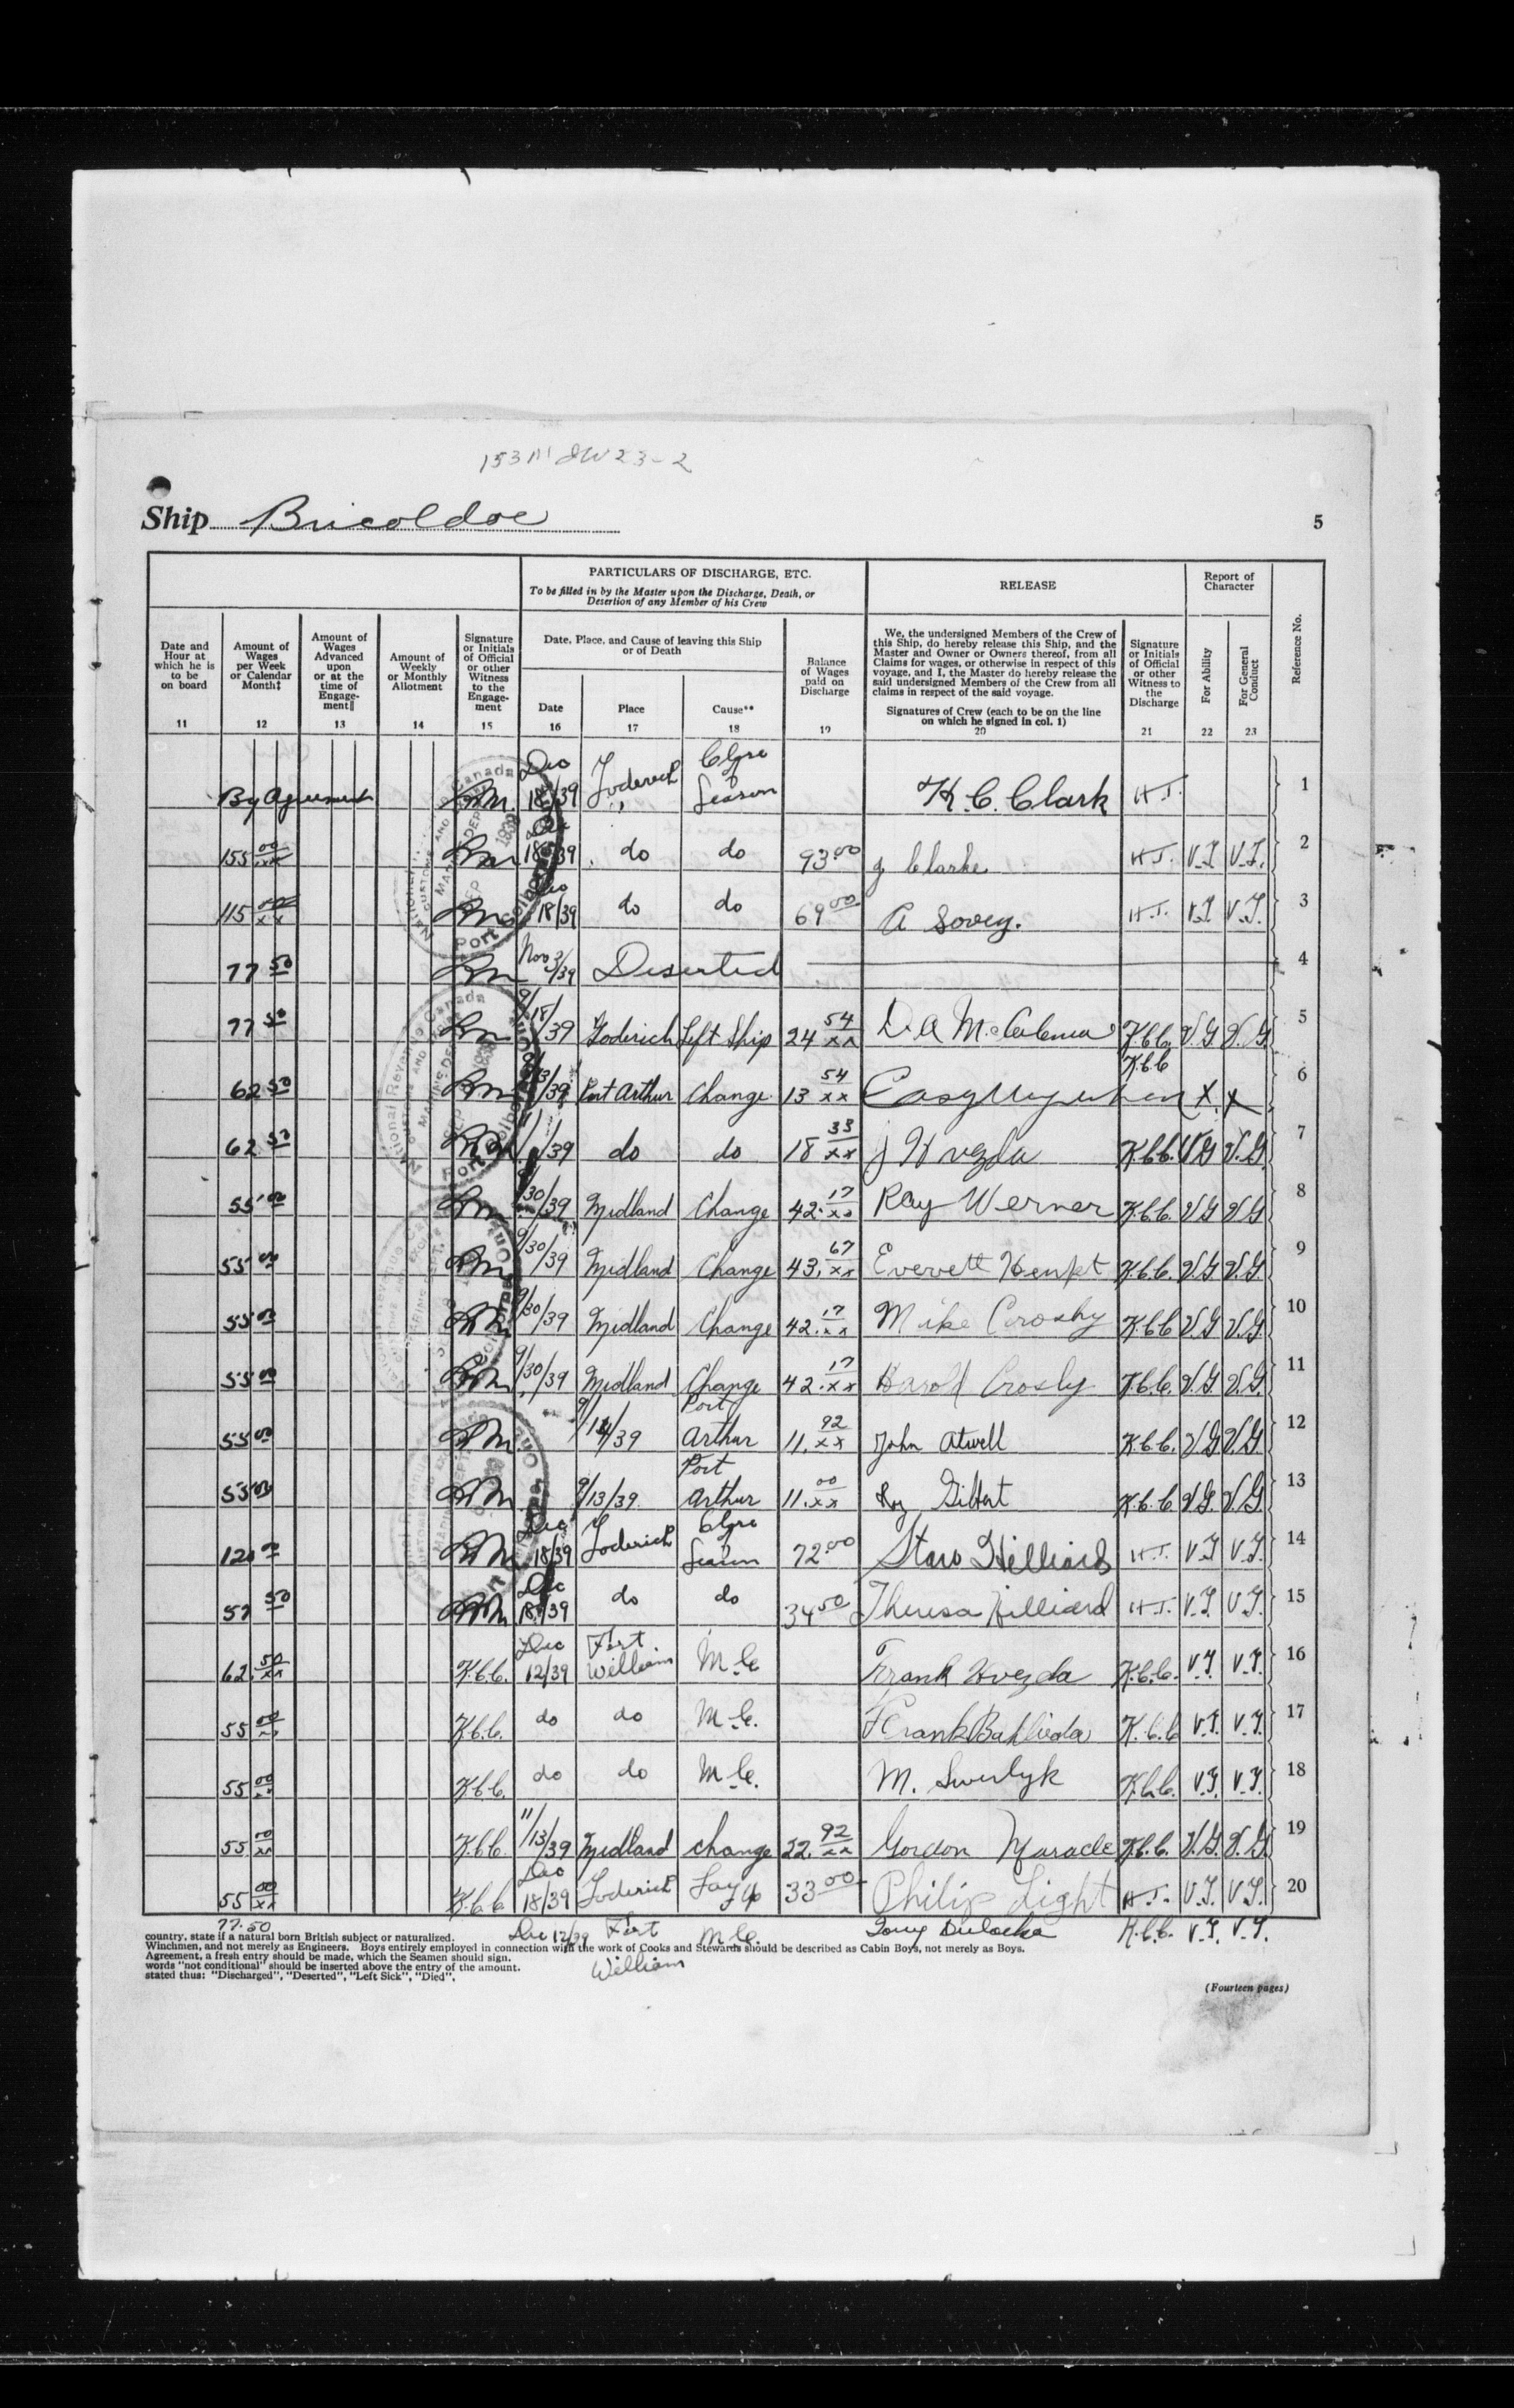 153 M JW 23-2
Ship Bricoldoc
5
PARTICULARS OF DISCHARGE, ETC.
To be filled in by the Master upon the Discharge, Death, or
Desertion of any Member of his Crew
RELEASE
Report of
Character
Reference No.
Date and
Hour at
which he is
to be
on board
11
Amount of
Wages
per Week
or Calendar
Month‡
12
Amount of
Wages
Advanced
upon
or at the
time of
Engage-
ment‖
13
Amount of
Weekly
or Monthly
Allotment
14
Signature
or Initials
of Official
or other
Witness
to the
Engage-
ment
15
Date, Place, and Cause of leaving this Ship
or of Death
Date
16
Place
17
Cause**
18
Balance
of Wages
paid on
Discharge
19
We, the undersigned Members of the Crew of
this Ship, do hereby release this Ship, and the
Master and Owner or Owners thereof, from all
Claims for wages, or otherwise in respect of this
voyage, and I, the Master do hereby release the
said undersigned Members of the Crew from all
claims in respect of the said voyage.
Signatures of Crew (each to be on the line
on which he signed in col. 1)
20
Signature
or Initials
of Official
or other
Witness to
the
Discharge
21
For Ability
22
For General
Conduct
23
By Agreement Dec 18/39 Goderich Close Season K. C. Clark H.T. 1
155 00/xx Dec 18/39 do do 93 00 J Clarke H.T. V.G V.G. 2
115 00/xx Dec 18/39 do do 69 00 A Sovey. H.T. V.G V.G. 3
77 50 Nov /39 Deserted 4
77 50 9/18/39 Goderich Left Ship 24 54/xx D. A. K.C.C. V.G V.G 5
62 50 /39 Port Arthur Change 13 54/xx K.C.C x x 6
62 50 /39 do do 18 33/xx J Hvezda K.C.C. V.G V.G 7
55 00 9/30/39 Midland Change 42. 17/xx Ray Werner K.C.C. V.G V.G 8
55 00 9/30/39 Midland Change 43. 67/xx Everett K.C.C. V.G V.G 9
55 00 9/30/39 Midland Change 42. 17/xx Mike Crosby K.C.C V.G V.G. 10
55 00 9/30/39 Midland Change 42. 17/xx Harold Crosby K.C.C. V.G. V.G. 11
55 00 9/14/39 Port Arthur 11. 92/xx John Atwell K.C.C. V.G V.G 12
55 00 9/13/39 Port Arthur 11. 00/xx Roy Gilbert K.C.C V.G. V.G. 13
120 00 Dec 18/39 Goderich Close Season 72 00 Hilliard H.T. V.G V.G. 14
57 50 Dec 18/39 do do 34 50 Theresa Hilliard H.T. V.G. V.G. 15
62 50/xx K.C.C. Dec 12/39 Fort William M.C. Frank Hvezda K.C.C. V.G. V.G. 16
55 00 K.C.C. do do M.C. Frank Bahlieda K.C.C V.G. V.G. 17
55 00 K.C.C. do do M.C. M. K.C.C. V.G. V.G. 18
55 00/xx K.C.C. 11/13/39 Midland change 22. 92/xx Gordon Maracle K.C.C. V.G. V.G. 19
55 00/xx K.C.C Dec 18/39 Goderich Lay Up 33 00 Philip Light H.T. V.G. V.G. 20
77.50 Dec 12/39 Fort William M.C. Tony K.C.C. V.G. V.G.
country, state if a natural born British subject or naturalized.
Winchmen, and not merely as Engineers. Boys entirely employed in connection with the work of Cooks and Stewards should be described as Cabin Boys, not merely as Boys.
Agreement, a fresh entry should be made, which the Seamen should sign.
words "not conditional" should be inserted above the entry of the amount.
stated thus: "Discharged", "Deserted", "Left Sick", "Died".
(Fourteen pages)